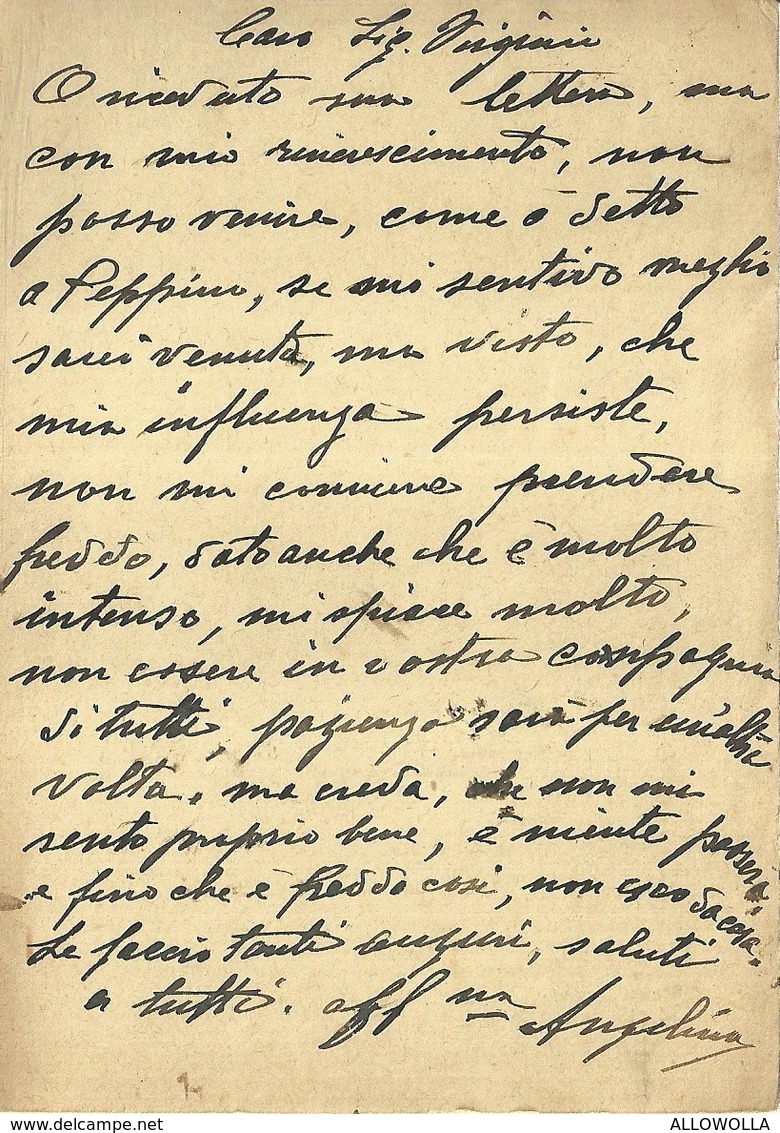 Caro Sig. Virginio
O ricevuto sua lettera, ma
con mio rincrescimento, non
posso venire, come ò detto
a Peppino, se mi sentivo meglio
sarei venuta, ma visto, che
mia influenza persiste,
non mi conviene prendere
freddo, dato anche che è molto
intenso, mi spiace molto,
non essere in vostra compagnia
di tutti, pazienza sarà per un'altra
volta, ma creda, che non mi
sento proprio bene, è niente passerà,
e fino che è freddo così, non esco da casa.
Le faccio tanti auguri, saluti
a tutti. aff ma Angelina
delcampe.net
ALLOWOLLA